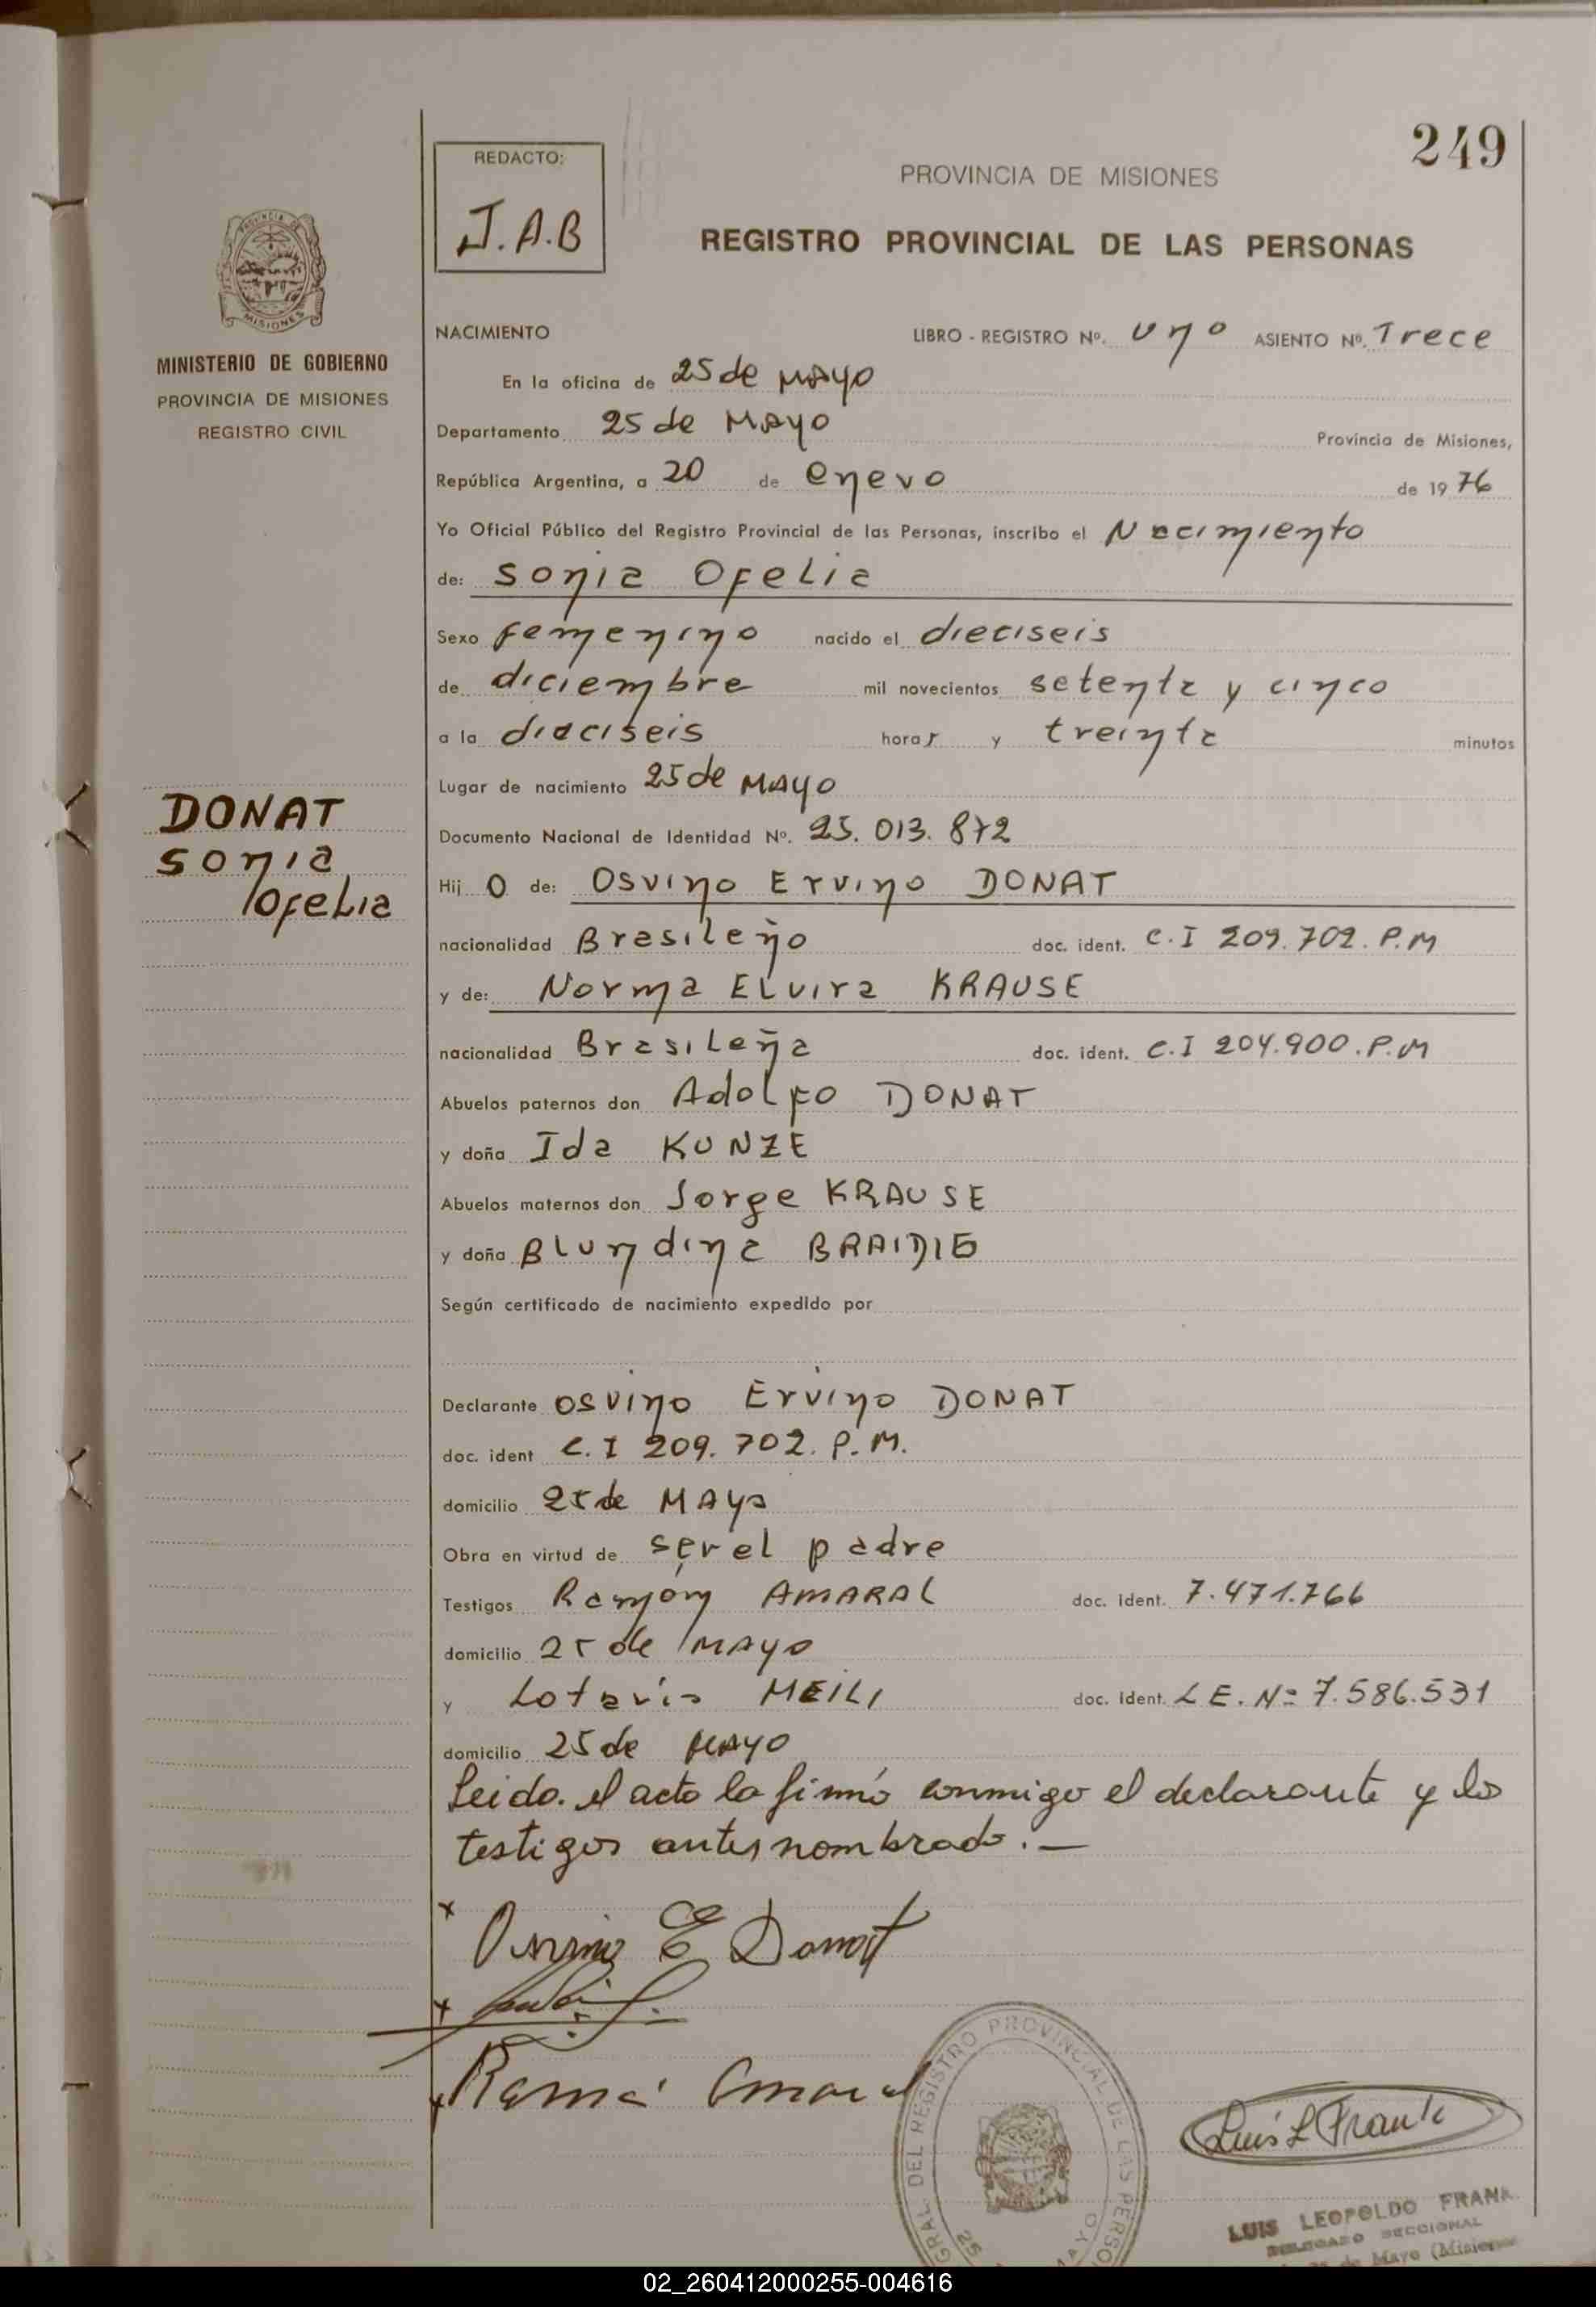 249
REDACTO:
J.A.B
PROVINCIA DE MISIONES
REGISTRO PROVINCIAL DE LAS PERSONAS
PROVINCIA DE
MISIONES
MINISTERIO DE GOBIERNO
PROVINCIA DE MISIONES
REGISTRO CIVIL
NACIMIENTO LIBRO - REGISTRO Nº. uno ASIENTO Nº. Trece
En la oficina de 25 de MAYO
Departamento 25 de MAYO Provincia de Misiones,
República Argentina, a 20 de enero de 19 76
Yo Oficial Público del Registro Provincial de las Personas, inscribo el Nacimiento
de: Sonia Ofelia
Sexo femenino nacido el dieciseis
de diciembre mil novecientos setenta y cinco
a la dieciseis horas y treinta minutos
Lugar de nacimiento 25 de MAYO
DONAT
Sonia
Ofelia
Documento Nacional de Identidad Nº. 25.013.872
Hij O de: Osvino Ervino DONAT
nacionalidad Brasileño doc. ident. C.I 209.702. P.M
y de: Norma Elvira KRAUSE
nacionalidad Brasileña doc. ident. C.I 204.900.P.M
Abuelos paternos don Adolfo DONAT
y doña Ida KUNZE
Abuelos maternos don Jorge KRAUSE
y doña Blundina BRAIDIG
Según certificado de nacimiento expedido por
Declarante Osvino Ervino DONAT
doc. ident C.I 209.702. P.M.
domicilio 25 de MAYO
Obra en virtud de ser el padre
Testigos Ramón AMARAL doc. ident. 7.471.766
domicilio 25 de MAYO
y Lotario MEILI doc. ident. L E. Nº 7.586.531
domicilio 25 de MAYO
Leido. el acto lo firmó conmigo el declarante y los
testigos antes nombrado.—
x Osvino E Donat
x
x Ramon Amaral
GRAL DEL REGISTRO PROVINCIAL DE LAS PERSO
25 MAYO
Luis L Frank
LUIS LEOPOLDO FRANK
DELEGADO SECCIONAL
25 de Mayo (Misiones
02_260412000255-004616